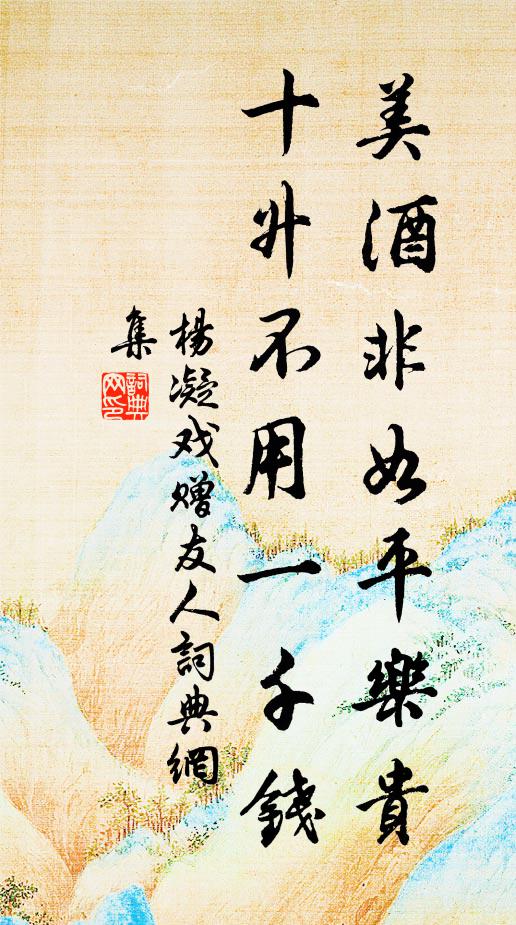 美酒非如平樂貴
十升不用一千錢
楊凝戏赠友人詞典網
集
詞典
网印